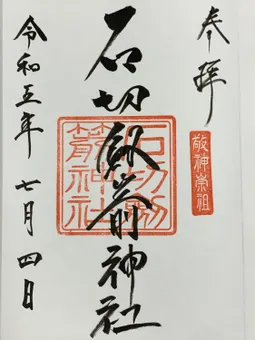 奉拝
敬神崇祖
石切劔箭神社
石切劔箭神社
令和五年七月四日